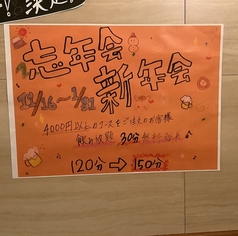 忘年会
新年会
12/16〜1/31
4000円以上のコースをご注文のお客様
飲み放題 30分無料延長
120分→150分